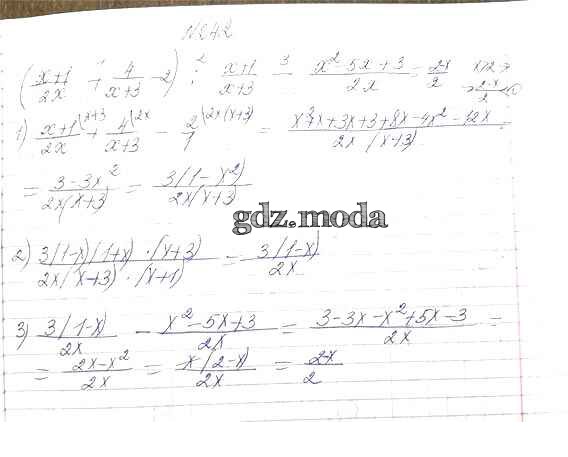 №642
( x+1/2x + 4/x+3 - 2 ) : x+1/x+3 - x²-5x+3/2x = 2-x/2
1) x+1/2x \x+3 + 4/x+3 \2x - 2/1 \2x(x+3) = x²+x+3x+3+8x-4x²-12x/2x(x+3) =
= 3-3x²/2x(x+3) = 3(1-x²)/2x(x+3)
gdz.moda
2) 3(1-x)(1+x)·(x+3)/2x(x+3)·(x+1) = 3(1-x)/2x
3) 3(1-x)/2x - x²-5x+3/2x = 3-3x-x²+5x-3/2x =
= 2x-x²/2x = x(2-x)/2x = 2-x/2